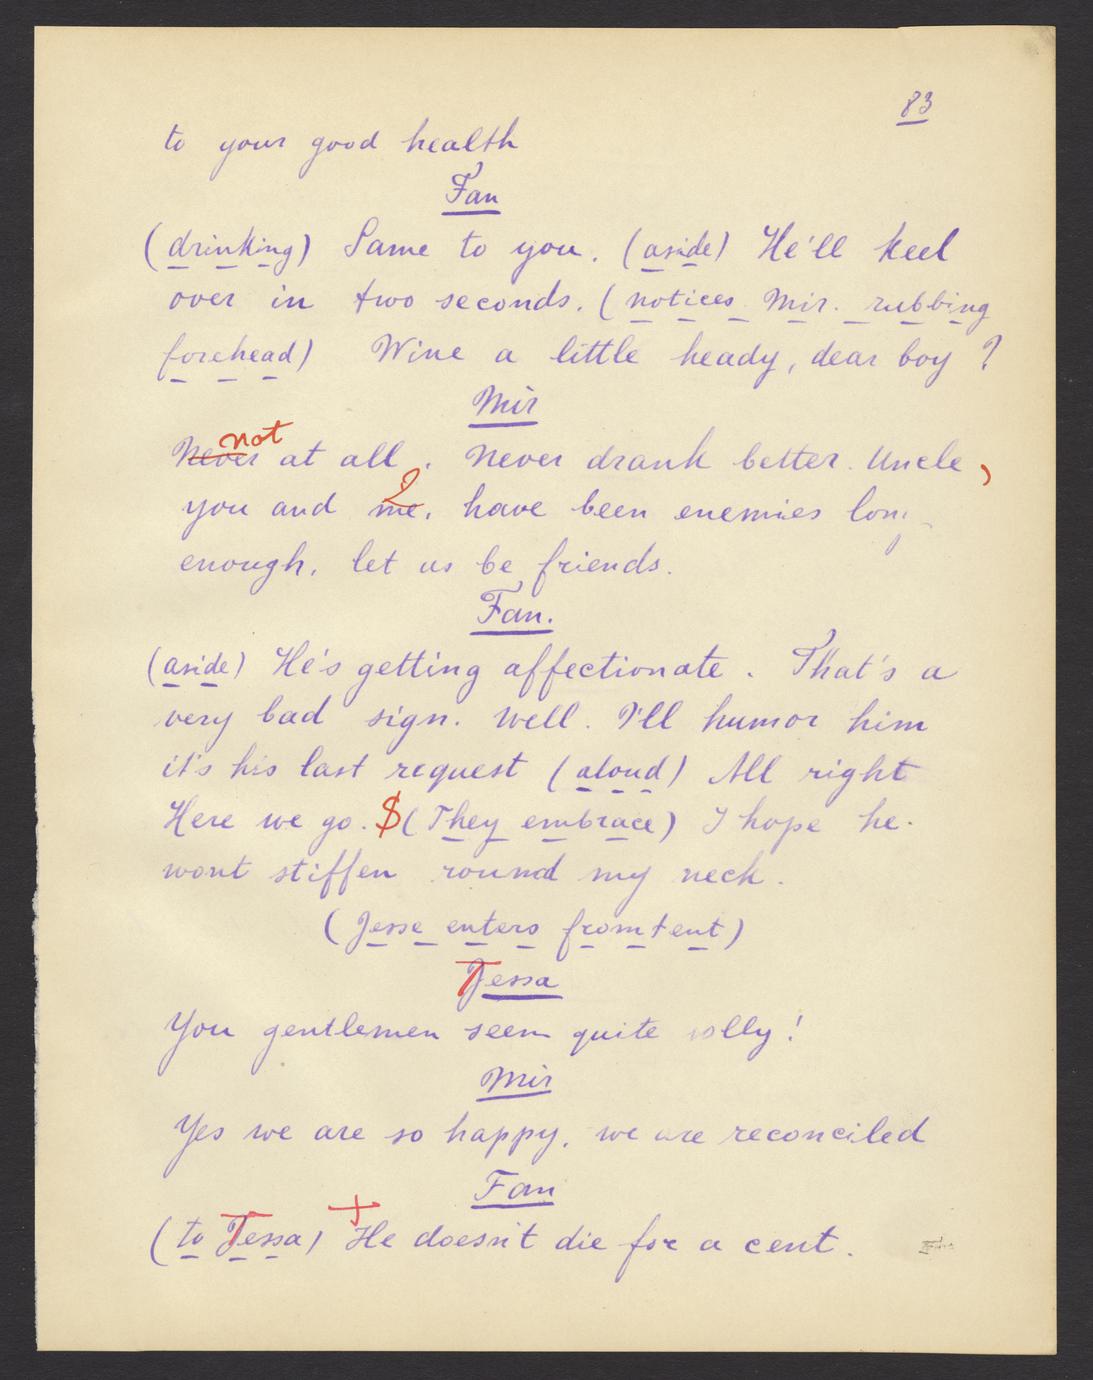 83
to your good health
Fan
(drinking) Same to you. (aside) He'll keel
over in two seconds. (notices Mir. rubbing
forehead) Wine a little heady, dear boy ?
Mir
not
Never at all . Never drank better. Uncle,
you and me. I have been enemies long
enough, let us be friends.
Fan.
(aside) He's getting affectionate . That's a
very bad sign. Well. I'll humor him
it's his last request (aloud) All right
Here we go. $ (They embrace) I hope he.
wont stiffen round my neck.
(Jesse enters from tent)
Tessa
You gentlemen seem quite jolly!
Mir
Yes we are so happy, we are reconciled
Fan
(to Tessa) + He doesn't die for a cent.